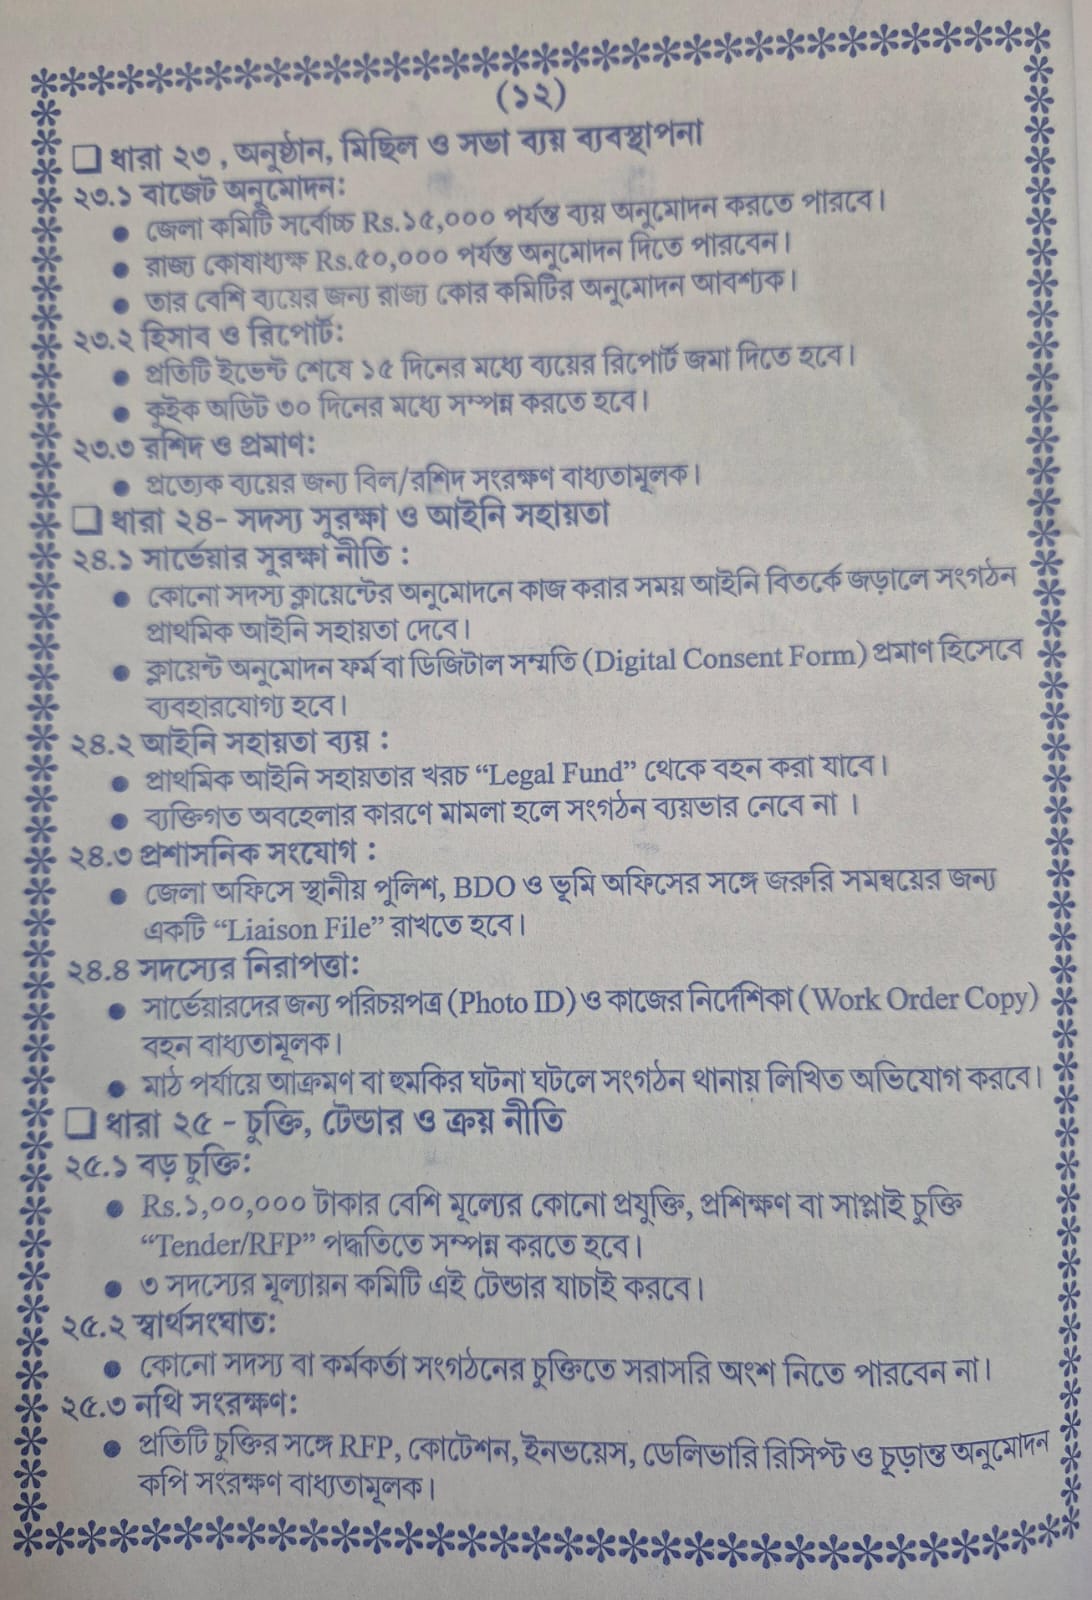 (১২)
❑ ধারা ২৩ , অনুষ্ঠান, মিছিল ও সভা ব্যয় ব্যবস্থাপনা
২৩.১ বাজেট অনুমোদন:
● জেলা কমিটি সর্বোচ্চ Rs.১৫,০০০ পর্যন্ত ব্যয় অনুমোদন করতে পারবে।
● রাজ্য কোষাধ্যক্ষ Rs.৫০,০০০ পর্যন্ত অনুমোদন দিতে পারবেন।
● তার বেশি ব্যয়ের জন্য রাজ্য কোর কমিটির অনুমোদন আবশ্যক।
২৩.২ হিসাব ও রিপোর্ট:
● প্রতিটি ইভেন্ট শেষে ১৫ দিনের মধ্যে ব্যয়ের রিপোর্ট জমা দিতে হবে।
● কুইক অডিট ৩০ দিনের মধ্যে সম্পন্ন করতে হবে।
২৩.৩ রশিদ ও প্রমাণ:
● প্রত্যেক ব্যয়ের জন্য বিল/রশিদ সংরক্ষণ বাধ্যতামূলক।
❑ ধারা ২৪- সদস্য সুরক্ষা ও আইনি সহায়তা
২৪.১ সার্ভেয়ার সুরক্ষা নীতি :
● কোনো সদস্য ক্লায়েন্টের অনুমোদনে কাজ করার সময় আইনি বিতর্কে জড়ালে সংগঠন
প্রাথমিক আইনি সহায়তা দেবে।
● ক্লায়েন্ট অনুমোদন ফর্ম বা ডিজিটাল সম্মতি (Digital Consent Form) প্রমাণ হিসেবে
ব্যবহারযোগ্য হবে।
২৪.২ আইনি সহায়তা ব্যয় :
● প্রাথমিক আইনি সহায়তার খরচ “Legal Fund” থেকে বহন করা যাবে।
● ব্যক্তিগত অবহেলার কারণে মামলা হলে সংগঠন ব্যয়ভার নেবে না ।
২৪.৩ প্রশাসনিক সংযোগ :
● জেলা অফিসে স্থানীয় পুলিশ, BDO ও ভূমি অফিসের সঙ্গে জরুরি সমন্বয়ের জন্য
একটি “Liaison File” রাখতে হবে।
২৪.৪ সদস্যের নিরাপত্তা:
● সার্ভেয়ারদের জন্য পরিচয়পত্র (Photo ID) ও কাজের নির্দেশিকা (Work Order Copy)
বহন বাধ্যতামূলক।
● মাঠ পর্যায়ে আক্রমণ বা হুমকির ঘটনা ঘটলে সংগঠন থানায় লিখিত অভিযোগ করবে।
❑ ধারা ২৫ - চুক্তি, টেন্ডার ও ক্রয় নীতি
২৫.১ বড় চুক্তি:
● Rs.১,০০,০০০ টাকার বেশি মূল্যের কোনো প্রযুক্তি, প্রশিক্ষণ বা সাপ্লাই চুক্তি
“Tender/RFP” পদ্ধতিতে সম্পন্ন করতে হবে।
● ৩ সদস্যের মূল্যায়ন কমিটি এই টেন্ডার যাচাই করবে।
২৫.২ স্বার্থসংঘাত:
● কোনো সদস্য বা কর্মকর্তা সংগঠনের চুক্তিতে সরাসরি অংশ নিতে পারবেন না।
২৫.৩ নথি সংরক্ষণ:
● প্রতিটি চুক্তির সঙ্গে RFP, কোটেশন, ইনভয়েস, ডেলিভারি রিসিপ্ট ও চূড়ান্ত অনুমোদন
কপি সংরক্ষণ বাধ্যতামূলক।